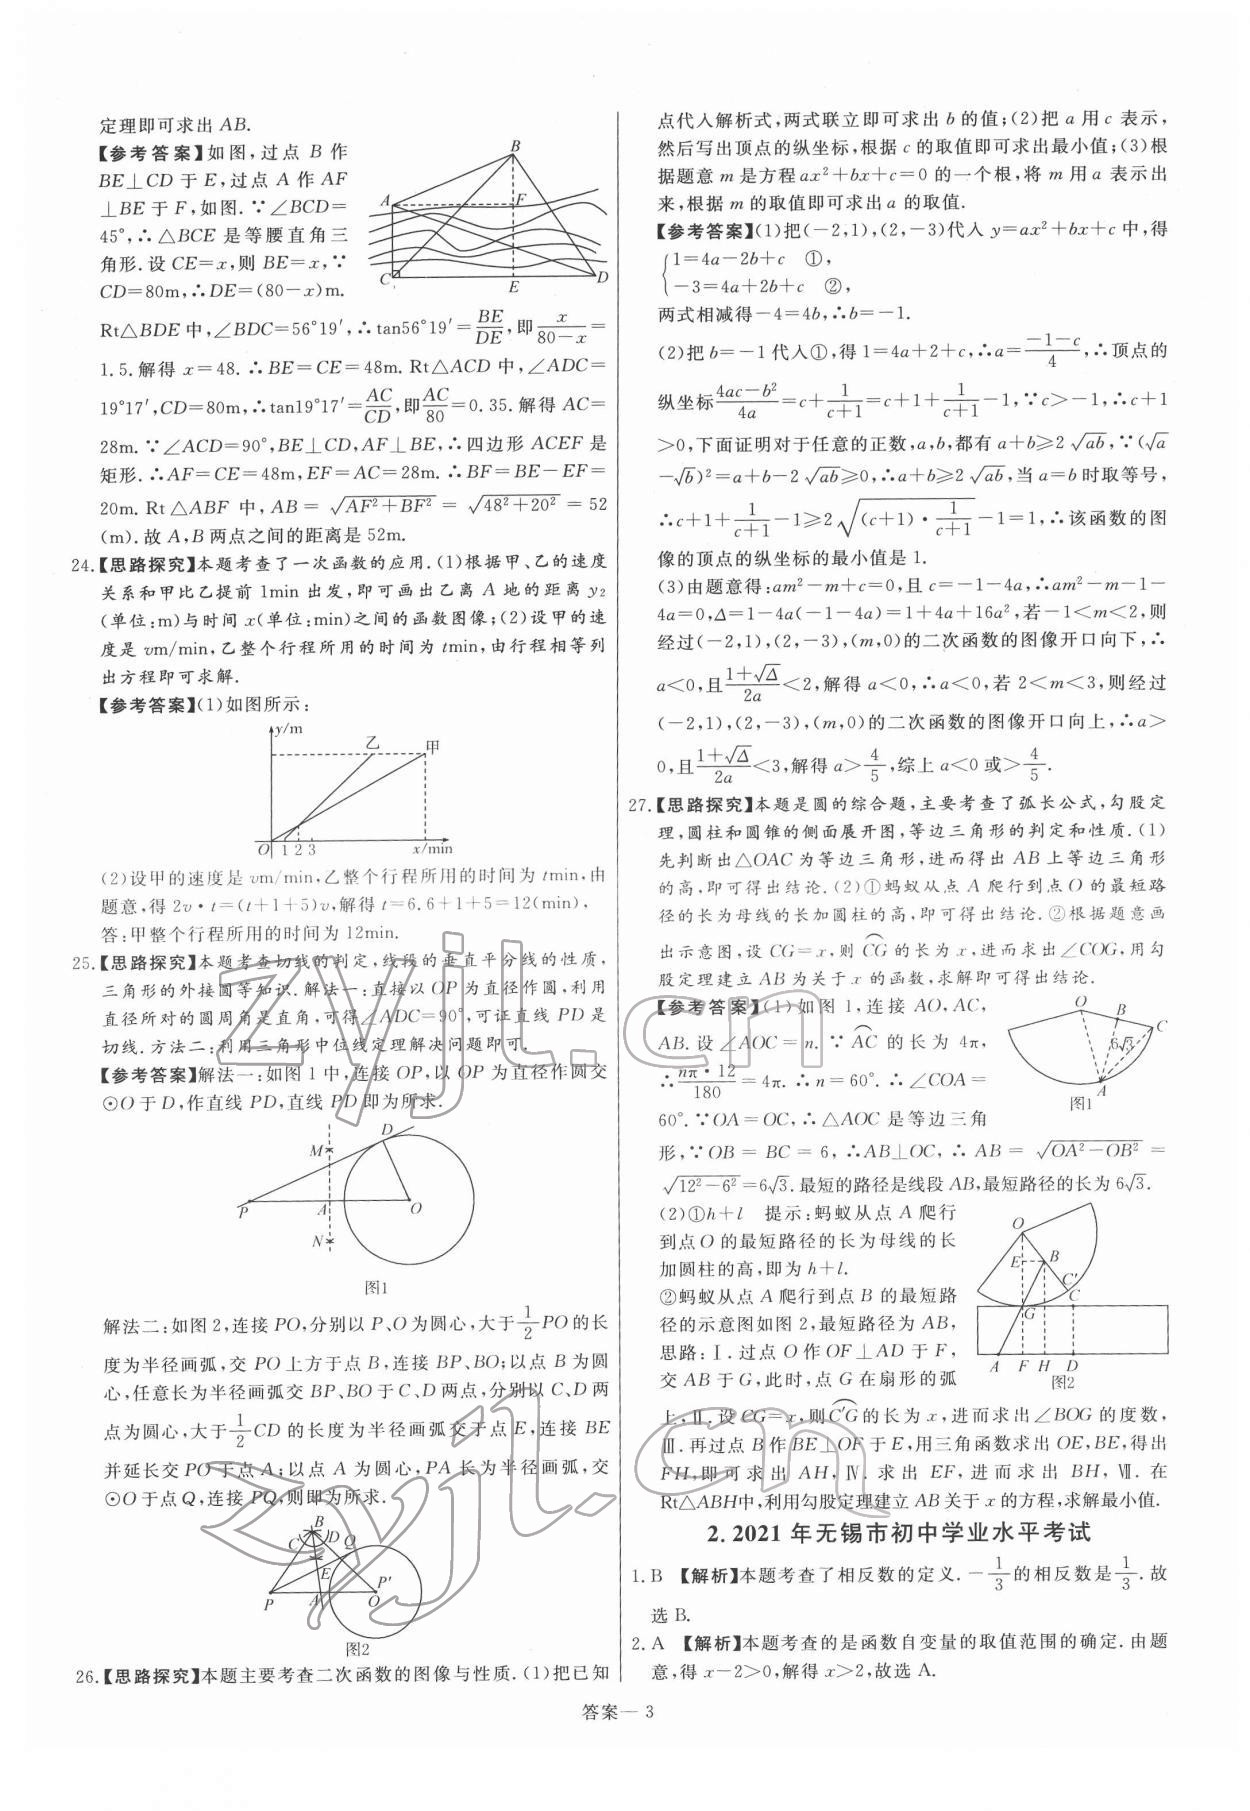 定理即可求出 AB.
【参考答案】如图,过点 B 作
BE⊥CD 于 E,过点 A 作 AF
⊥BE 于 F,如图.∵∠BCD=
45°,∴△BCE 是等腰直角三
角形.设 CE=x,则 BE=x,∵
CD=80m,∴DE=(80-x)m.
A B F C E D
Rt△BDE 中,∠BDC=56°19′,∴tan56°19′=BE/DE,即x/(80-x)=
1.5.解得 x=48.∴BE=CE=48m.Rt△ACD 中,∠ADC=
19°17′,CD=80m,∴tan19°17′=AC/CD,即AC/80=0.35.解得 AC=
28m.∵∠ACD=90°,BE⊥CD,AF⊥BE,∴四边形 ACEF 是
矩形.∴AF=CE=48m,EF=AC=28m.∴BF=BE-EF=
20m.Rt△ABF 中,AB=√(AF²+BF²)=√(48²+20²)=52
(m).故 A,B 两点之间的距离是 52m.
24.【思路探究】本题考查了一次函数的应用.(1)根据甲、乙的速度
关系和甲比乙提前 1min 出发,即可画出乙离 A 地的距离 y₂
(单位:m)与时间 x(单位:min)之间的函数图像;(2)设甲的速
度是 vm/min,乙整个行程所用的时间为 tmin,由行程相等列
出方程即可求解.
【参考答案】(1)如图所示:
y/m
乙 甲
O 1 2 3 x/min
(2)设甲的速度是 vm/min,乙整个行程所用的时间为 tmin,由
题意,得 2v·t=(t+1+5)v,解得 t=6.6+1+5=12(min),
答:甲整个行程所用的时间为 12min.
25.【思路探究】本题考查切线的判定,线段的垂直平分线的性质,
三角形的外接圆等知识.解法一:直接以 OP 为直径作圆,利用
直径所对的圆周角是直角,可得∠ADC=90°,可证直线 PD 是
切线.方法二:利用三角形中位线定理解决问题即可.
【参考答案】解法一:如图 1 中,连接 OP,以 OP 为直径作圆交
⊙O 于 D,作直线 PD,直线 PD 即为所求.
D M P A O N
图1
解法二:如图 2,连接 PO,分别以 P、O 为圆心,大于1/2PO 的长
度为半径画弧,交 PO 上方于点 B,连接 BP、BO;以点 B 为圆
心,任意长为半径画弧交 BP、BO 于 C、D 两点,分别以 C、D 两
点为圆心,大于1/2CD 的长度为半径画弧交于点 E,连接 BE
并延长交 PO 于点 A;以点 A 为圆心,PA 长为半径画弧,交
⊙O 于点 Q,连接 PQ,则即为所求.
B C D Q E P′ P A O
图2
26.【思路探究】本题主要考查二次函数的图像与性质.(1)把已知
点代入解析式,两式联立即可求出 b 的值;(2)把 a 用 c 表示,
然后写出顶点的纵坐标,根据 c 的取值即可求出最小值;(3)根
据题意 m 是方程 ax²+bx+c=0 的一个根,将 m 用 a 表示出
来,根据 m 的取值即可求出 a 的取值.
【参考答案】(1)把(-2,1),(2,-3)代入 y=ax²+bx+c 中,得
{1=4a-2b+c ①,
-3=4a+2b+c ②,
两式相减得-4=4b,∴b=-1.
(2)把 b=-1 代入①,得 1=4a+2+c,∴a=(-1-c)/4,∴顶点的
纵坐标(4ac-b²)/4a=c+1/(c+1)=c+1+1/(c+1)-1,∵c>-1,∴c+1
>0,下面证明对于任意的正数,a,b,都有 a+b≥2√ab,∵(√a
-√b)²=a+b-2√ab≥0,∴a+b≥2√ab,当 a=b 时取等号,
∴c+1+1/(c+1)-1≥2√((c+1)·1/(c+1))-1=1,∴该函数的图
像的顶点的纵坐标的最小值是 1.
(3)由题意得:am²-m+c=0,且 c=-1-4a,∴am²-m-1-
4a=0,Δ=1-4a(-1-4a)=1+4a+16a²,若-1<m<2,则
经过(-2,1),(2,-3),(m,0)的二次函数的图像开口向下,∴
a<0,且(1+√Δ)/2a<2,解得 a<0,∴a<0,若 2<m<3,则经过
(-2,1),(2,-3),(m,0)的二次函数的图像开口向上,∴a>
0,且(1+√Δ)/2a<3,解得 a>4/5,综上 a<0 或>4/5.
27.【思路探究】本题是圆的综合题,主要考查了弧长公式,勾股定
理,圆柱和圆锥的侧面展开图,等边三角形的判定和性质.(1)
先判断出△OAC 为等边三角形,进而得出 AB 上等边三角形
的高,即可得出结论.(2)①蚂蚁从点 A 爬行到点 O 的最短路
径的长为母线的长加圆柱的高,即可得出结论.②根据题意画
出示意图,设 CG=x,则 C͡G 的长为 x,进而求出∠COG,用勾
股定理建立 AB 为关于 x 的函数,求解即可得出结论.
【参考答案】(1)如图 1,连接 AO,AC,
AB.设∠AOC=n.∵A͡C 的长为 4π,
∴nπ·12/180=4π.∴n=60°.∴∠COA=
60°.∵OA=OC,∴△AOC 是等边三角
O B C 6√3 A
图1
形,∵OB=BC=6,∴AB⊥OC,∴AB=√(OA²-OB²)=
√(12²-6²)=6√3.最短的路径是线段 AB,最短路径的长为 6√3.
(2)①h+l 提示:蚂蚁从点 A 爬行
到点 O 的最短路径的长为母线的长
加圆柱的高,即为 h+l.
②蚂蚁从点 A 爬行到点 B 的最短路
径的示意图如图 2,最短路径为 AB,
思路:Ⅰ.过点 O 作 OF⊥AD 于 F,
交 AB 于 G,此时,点 G 在扇形的弧
O E B C′ C G A F H D
图2
上,Ⅱ.设 CG=x,则C͡′G 的长为 x,进而求出∠BOG 的度数,
Ⅲ.再过点 B 作 BE⊥OF 于 E,用三角函数求出 OE,BE,得出
FH,即可求出 AH,Ⅳ.求出 EF,进而求出 BH,Ⅶ.在
Rt△ABH中,利用勾股定理建立 AB 关于 x 的方程,求解最小值.
2.2021 年无锡市初中学业水平考试
1.B 【解析】本题考查了相反数的定义.-1/3的相反数是1/3.故
选 B.
2.A 【解析】本题考查的是函数自变量的取值范围的确定.由题
意,得 x-2>0,解得 x>2,故选 A.
答案— 3
zyjl.cn
zyjl.cn